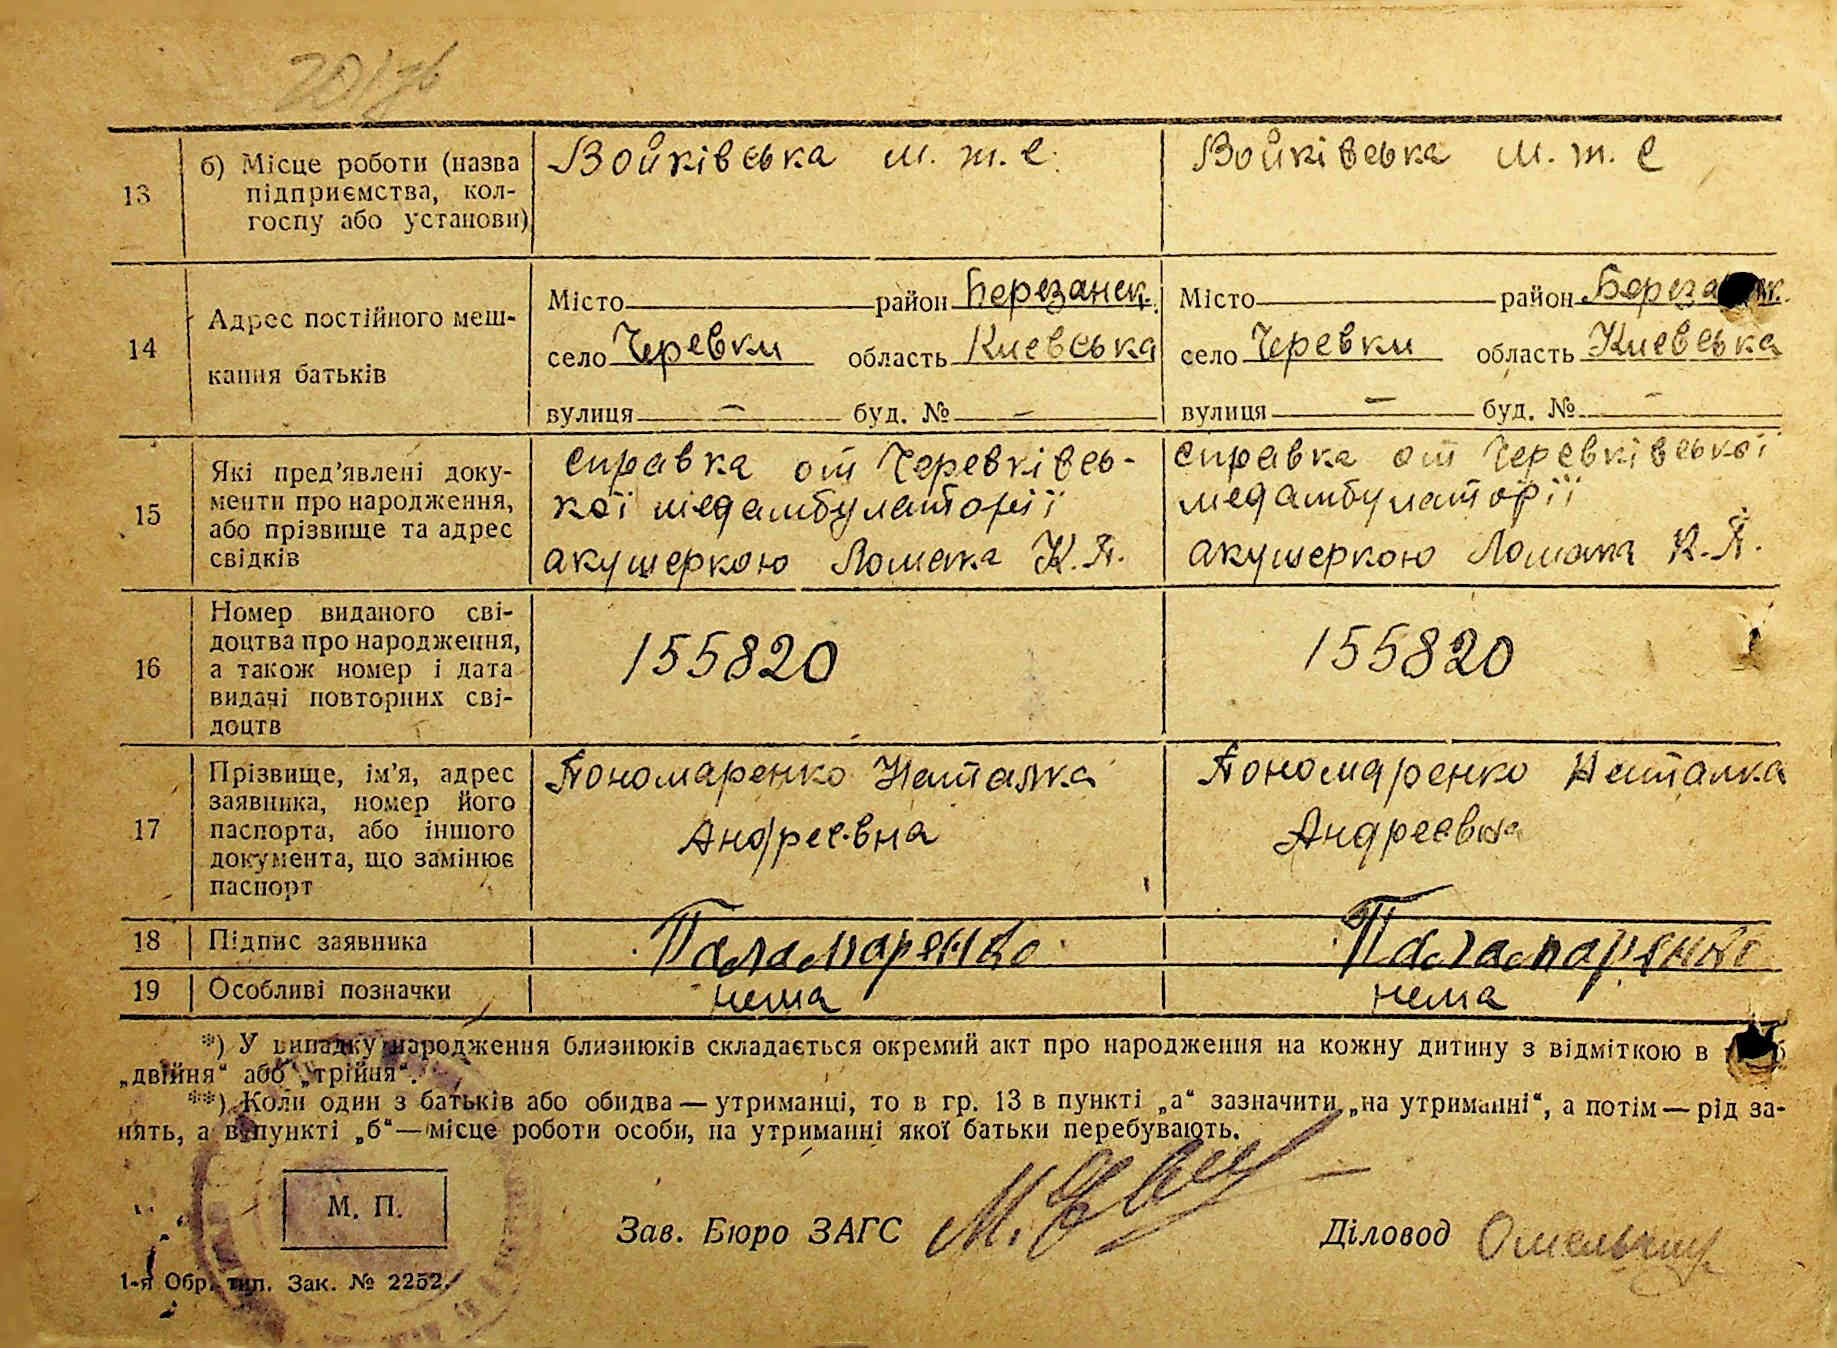 13
б) Місце роботи (назва
підприємства, кол-
госпу або установи)
Войківська м. т. с.
Войківська м. т. с
14
Адрес постійного меш-
кання батьків
Місто район Березанськ.
село Черевки область Киевська
вулиця — буд. № —
Місто район
село Черевки область Киевська
вулиця — буд. № —
15
Які пред'явлені доку-
менти про народження,
або прізвище та адрес
свідків
справка от Черевківсь-
кої медамбулаторії
акушеркою Ломака К. П.
справка от Черевківської
медамбулаторії
акушеркою Ломака К. П.
16
Номер виданого сві-
доцтва про народження,
а також номер і дата
видачі повторних сві-
доцтв
155820
155820
17
Прізвище, ім'я, адрес
заявника, номер його
паспорта, або іншого
документа, що замінює
паспорт
Пономаренко Наталка
Андреевна
Пономаренко Наталка
Андреевна
18
Підпис заявника
Паламаренко
Паламаренко
19
Особливі позначки
нема
нема
*) У випадку народження близнюків складається окремий акт про народження на кожну дитину з відміткою в
„двійня“ або „трійня“.
**) Коли один з батьків або обидва — утриманці, то в гр. 13 в пункті „а“ зазначити „на утриманні“, а потім — рід за-
нять, а в пункті „б“ — місце роботи особи, на утриманні якої батьки перебувають.
М. П.
Зав. Бюро ЗАГС
Діловод
1-я Обр. тип. Зак. № 2252.